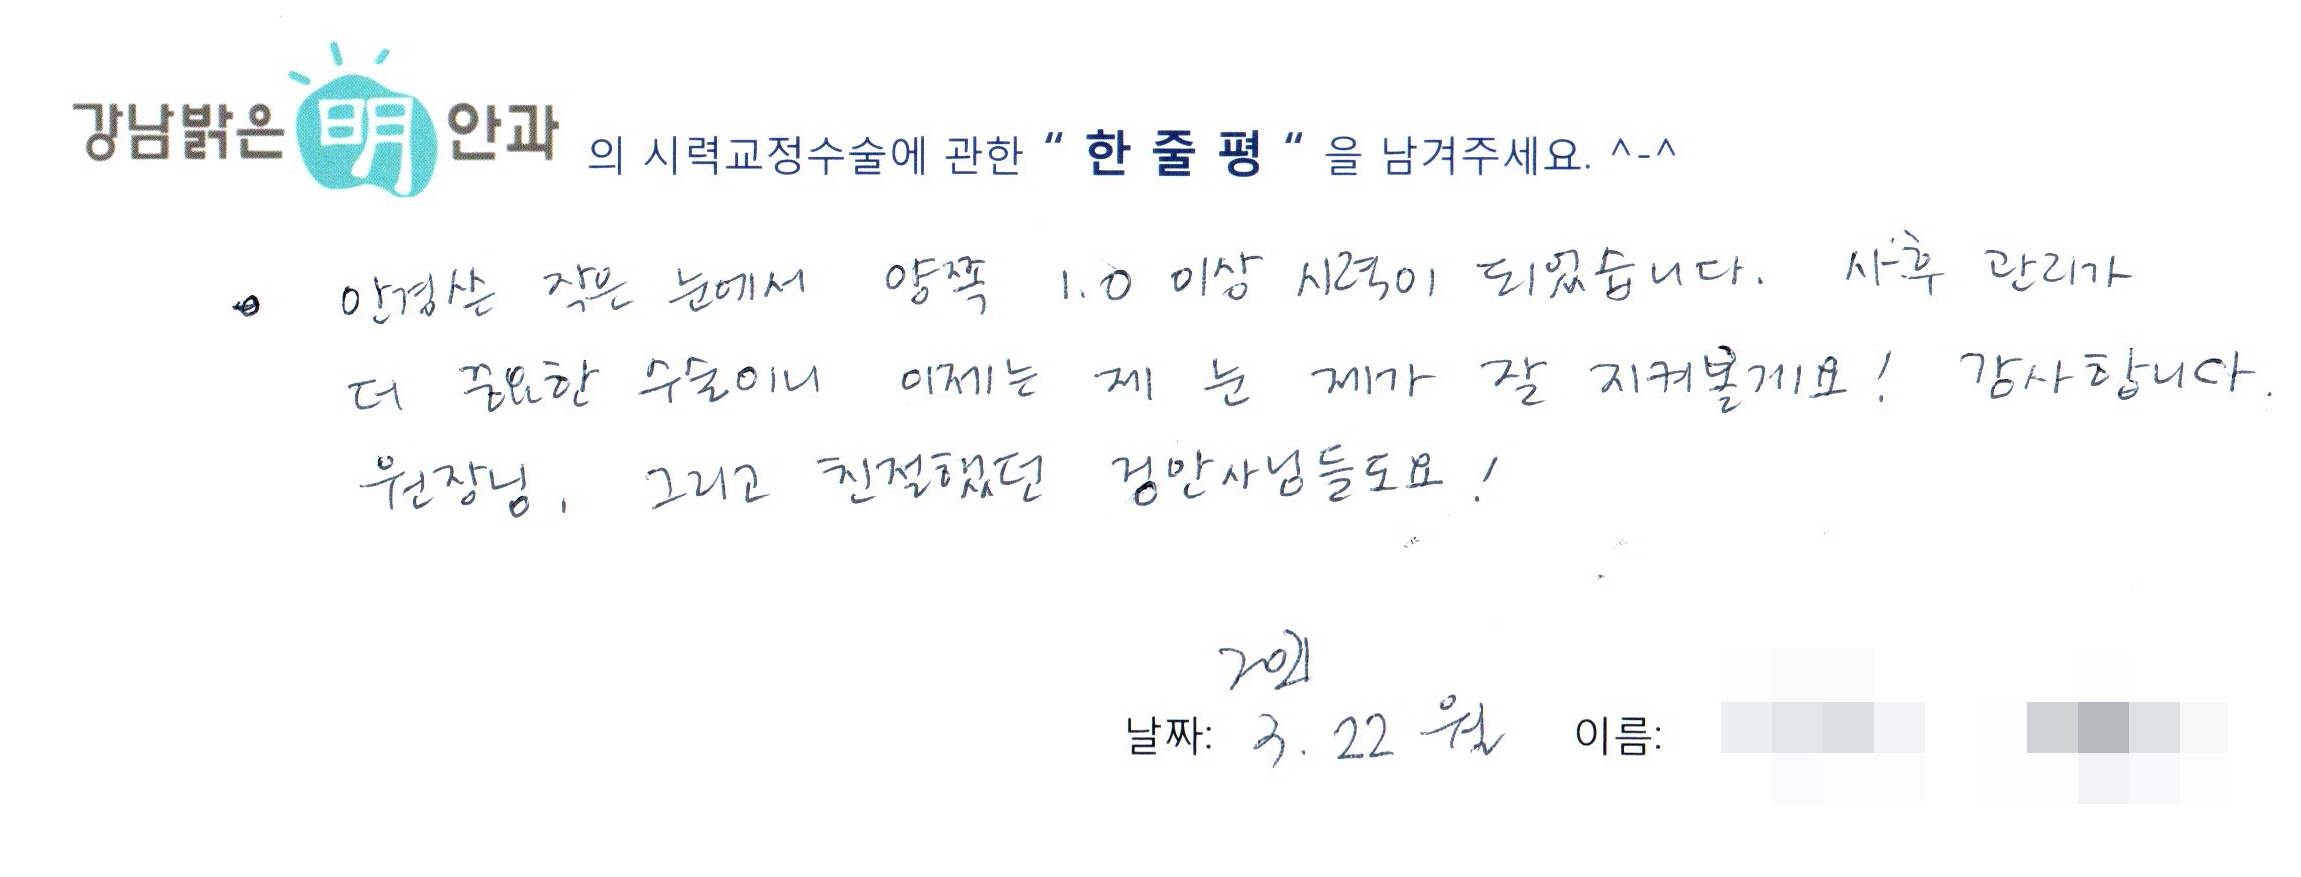 강남밝은 明 안과 의 시력교정수술에 관한 “ 한 줄 평 “ 을 남겨주세요. ^-^
안경쓴 작은 눈에서 양쪽 1.0 이상 시력이 되었습니다. 사후 관리가
더 중요한 수술이니 이제는 제 눈 제가 잘 지켜볼게요! 감사합니다.
원장님, 그리고 친절했던 검안사님들도요!
날짜: 3. 22 월 이름: